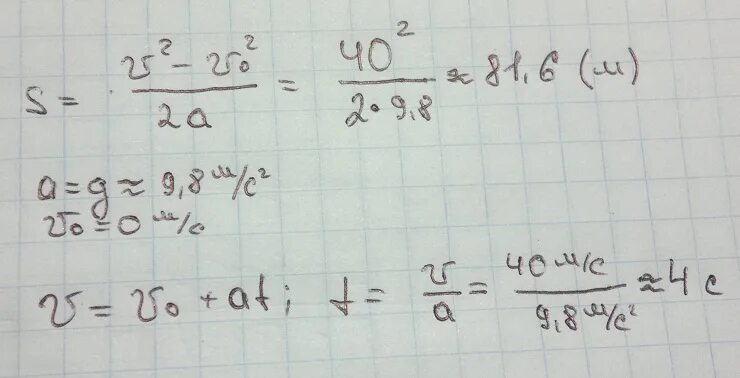 S = υ² − υ₀² / 2a = 40² / 2·9,8 ≈ 81,6 (м)
a = g ≈ 9,8 м/с²
υ₀ = 0 м/с
υ = υ₀ + at; t = υ / a = 40 м/с / 9,8 м/с² ≈ 4 с